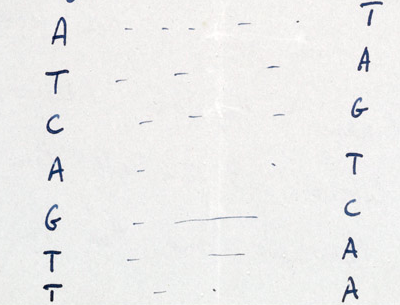 A - - - - . T
T - - - A
C - - - G
A - . T
G - — C
T - — A
T - . A